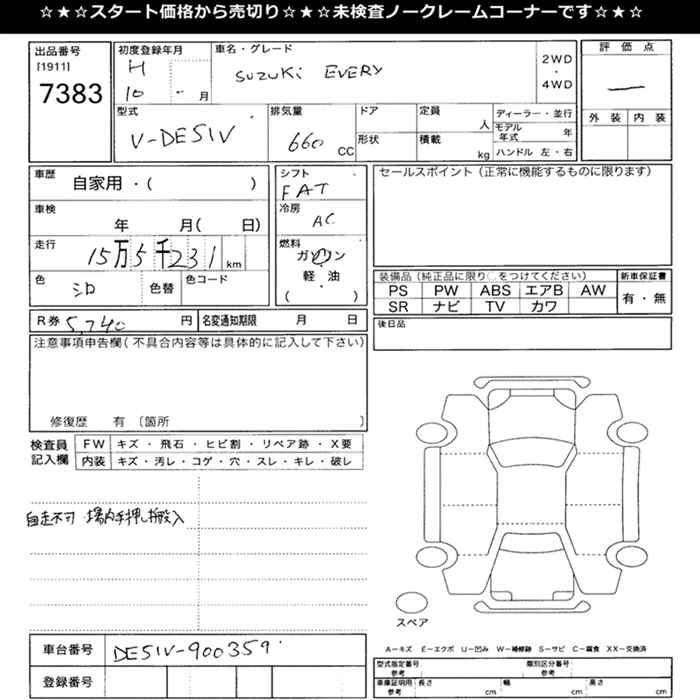 ☆★☆スタート価格から売切り☆★☆未検査ノークレームコーナーです☆★☆
出品番号
[1911]
7383
初度登録年月
H
10 - 月
車名・グレード
SUZUKi EVERY
2WD
・
4WD
評価点
―
外装 内装
型式
V-DE51V
排気量
660 CC
ドア
形状
定員
人
積載
kg
ディーラー・並行
モデル年式 年
ハンドル 左・右
車歴
自家用・( )
車検
年 月( 日)
走行
15万5千231 km
色
シロ
色替
色コード
シフト
FAT
冷房
AC
燃料
ガソリン
軽・油
( )
セールスポイント(正常に機能するものに限ります)
装備品(純正品に限り○をつけてください)
PS PW ABS エアB AW
SR ナビ TV カワ
新車保証書
有・無
R券 5,740 円
名変通知期限 月 日
後日品
注意事項申告欄(不具合内容等は具体的に記入して下さい)
修復歴 有 〔箇所 〕
検査員
記入欄
FW キズ・飛石・ヒビ割・リペア跡・X要
内装 キズ・汚レ・コゲ・穴・スレ・キレ・破レ
自走不可 場内手押し搬入
スペア
車台番号
DE51V-900359
登録番号
A－キズ E－エクボ U－凹み W－補修跡 S－サビ C－腐食 XX－交換済
型式指定番号
参考
類別区分番号
参考
車庫証明用
参考
長さ cm
幅 cm
高さ cm